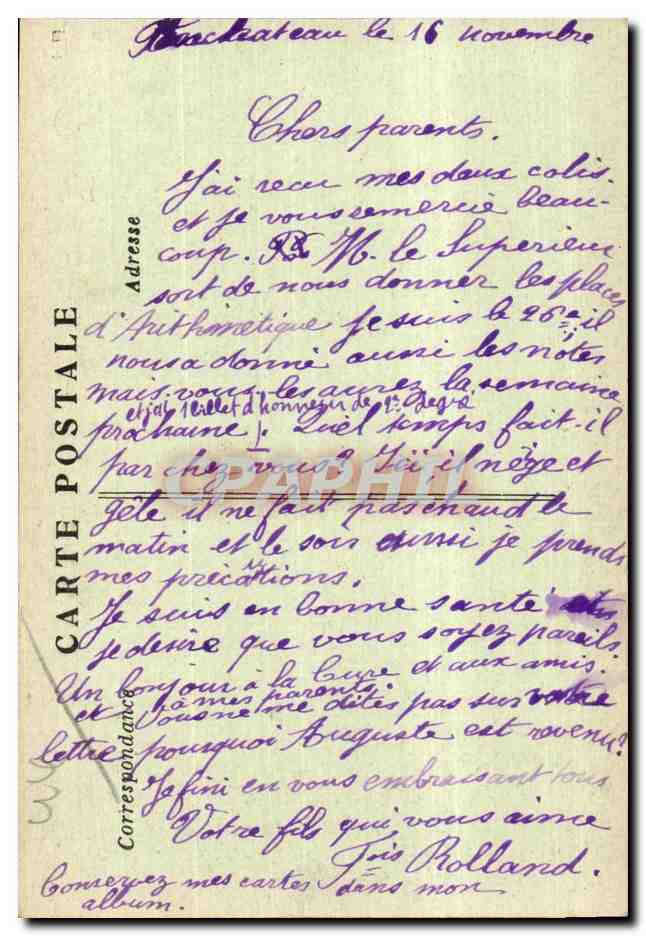 le 16 novembre
Chers parents.
J'ai recu mes deux colis.
et je vous remercie beau-
coup. M. le Superieur
sort de nous donner les places
d'Arithmetique je suis le 26e, il
nous a donné aussi les notes
mais vous les aurez la semaine
et j'ai 1 billet d'honneur de 2e degré
prochaine. Quel temps fait-il
par chez vous? Ici, il nège et
gêle il ne fait pas chaud le
matin et le soir aussi je prends
mes précautions.
Je suis en bonne santé et
je desire que vous soyez pareils
Un bonjour à la Cure et aux amis.
et à mes parents.
Vous ne me dites pas sur votre
lettre pourquoi Auguste est revenu?
Je fini en vous embrassant tous
Votre fils qui vous aime
Fois Rolland.
Conservez mes cartes dans mon
album.
CARTE POSTALE
Correspondance
Adresse
CPAPHIL